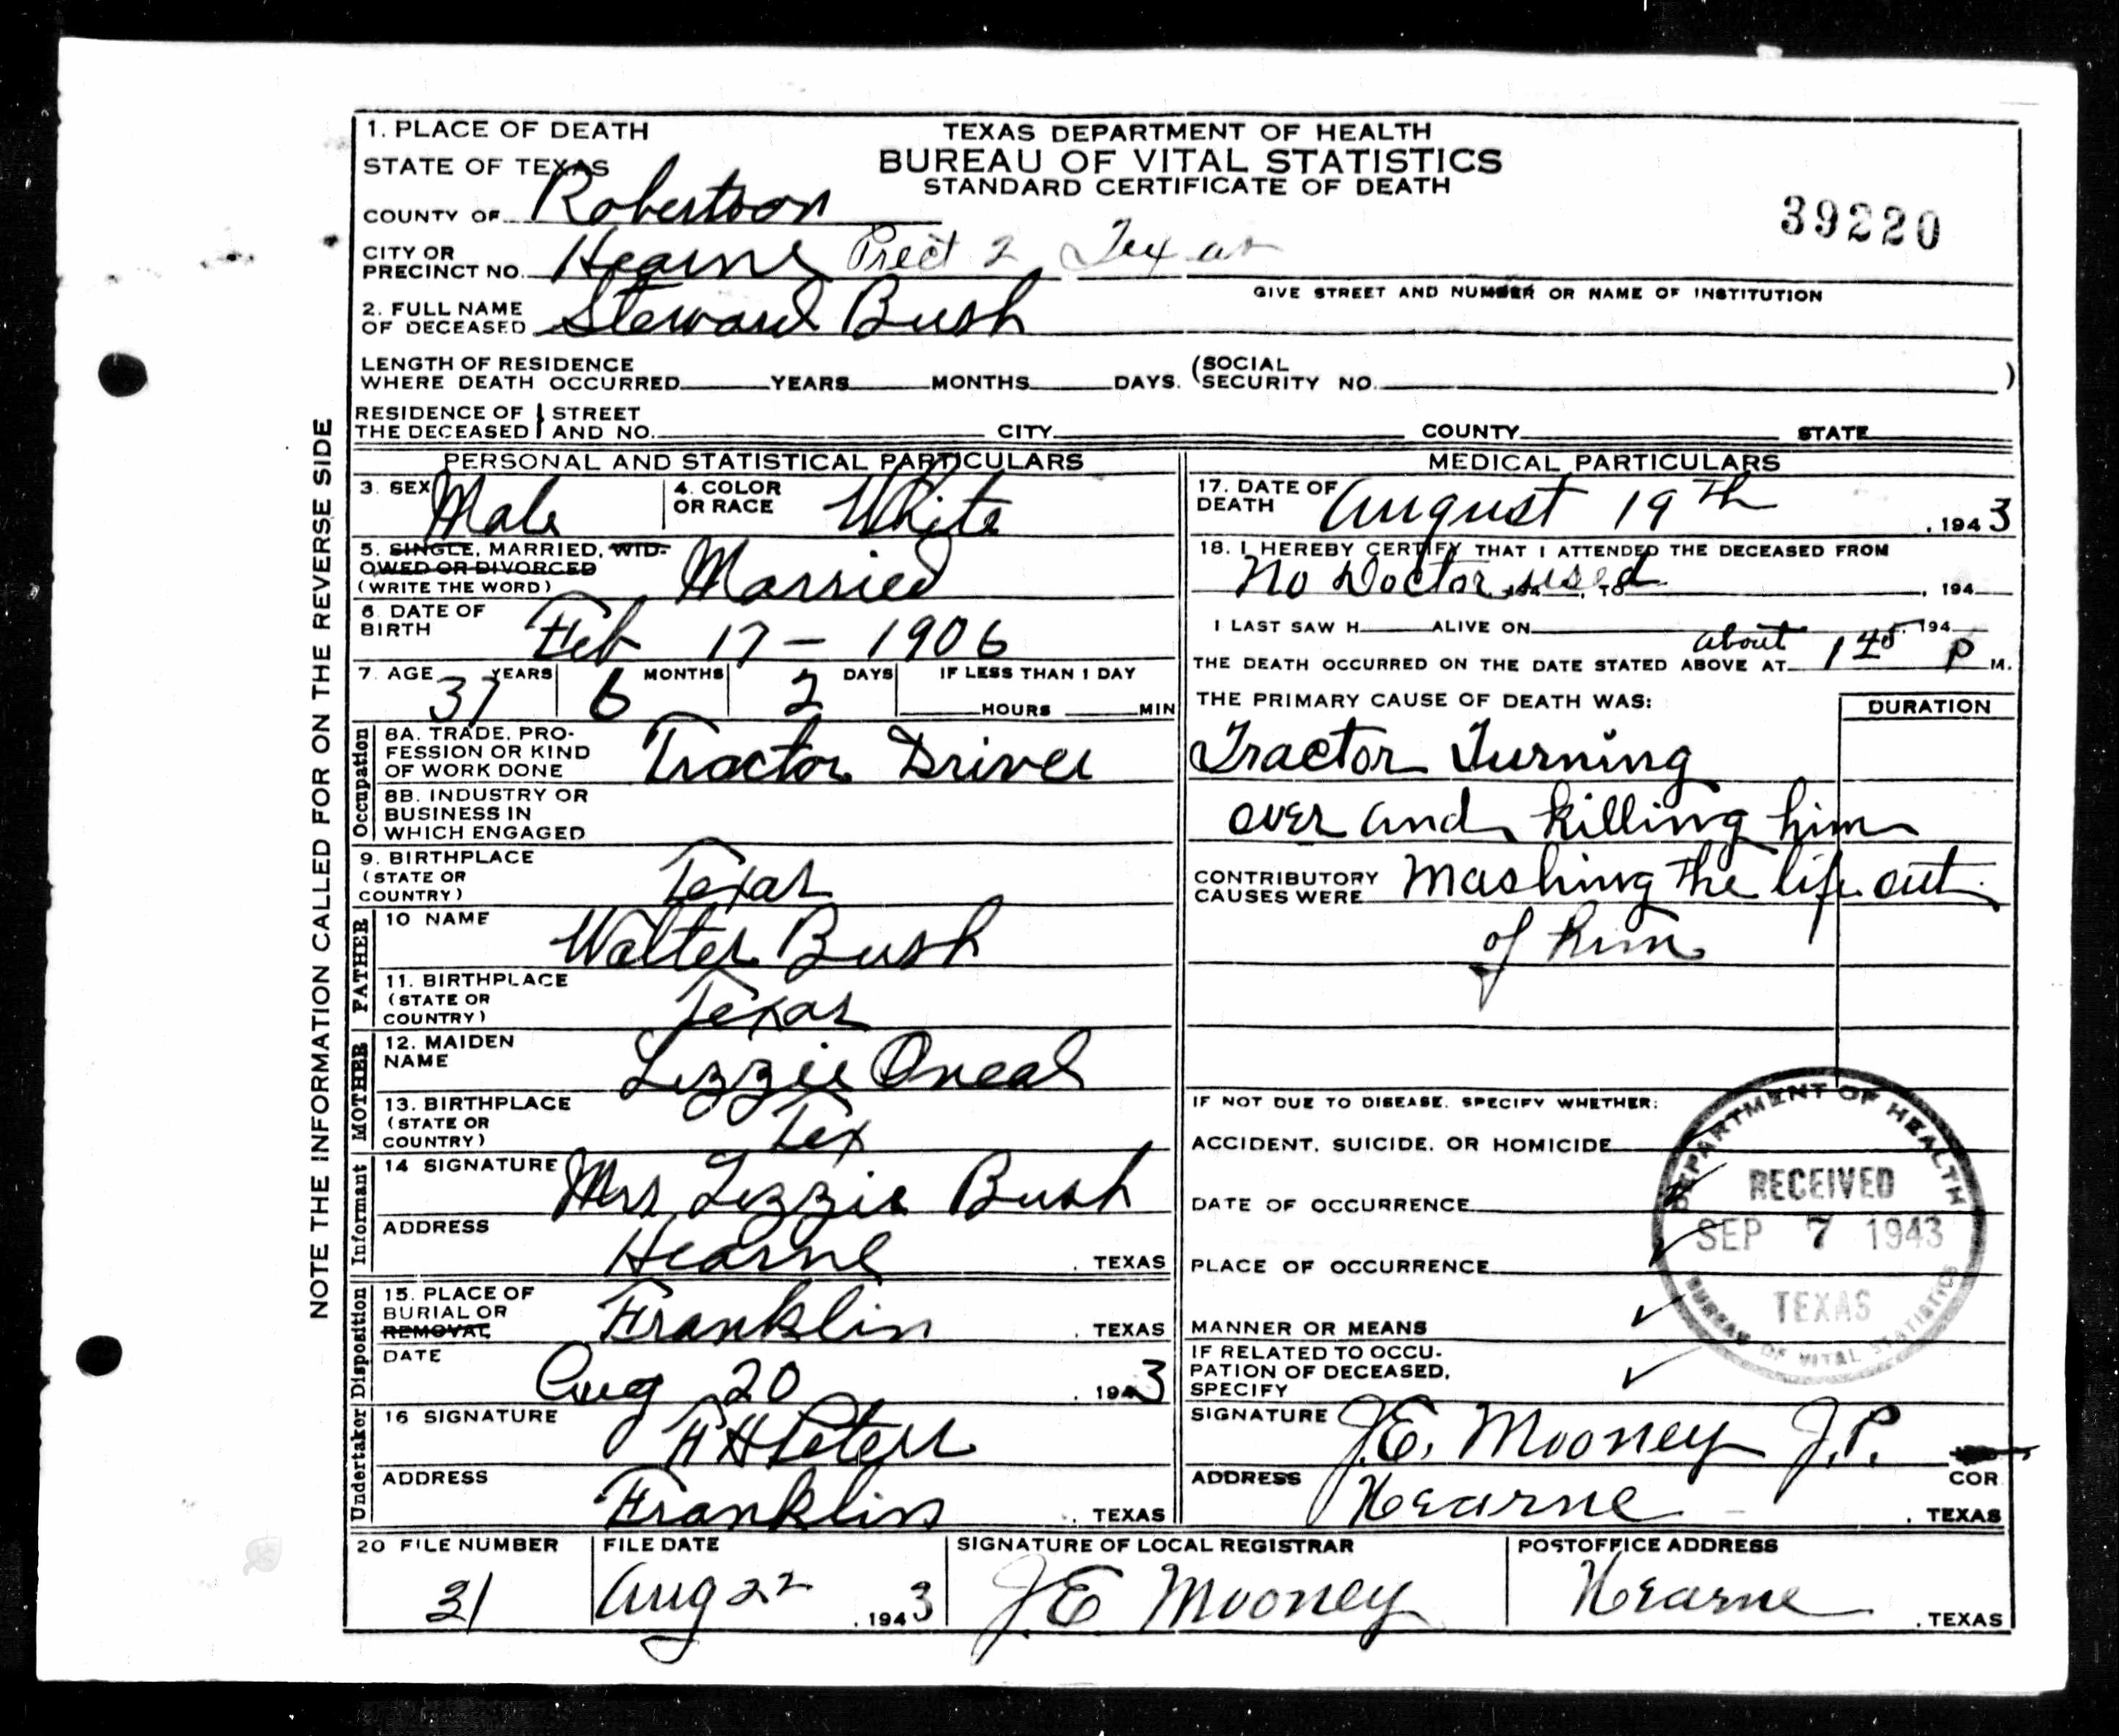 1. PLACE OF DEATH
STATE OF TEXAS
TEXAS DEPARTMENT OF HEALTH
BUREAU OF VITAL STATISTICS
STANDARD CERTIFICATE OF DEATH
39220
COUNTY OF Robertson
CITY OR PRECINCT NO. Hearne Prect 2 Texas
GIVE STREET AND NUMBER OR NAME OF INSTITUTION
2. FULL NAME OF DECEASED Steward Bush
LENGTH OF RESIDENCE WHERE DEATH OCCURRED YEARS MONTHS DAYS. (SOCIAL SECURITY NO. )
RESIDENCE OF THE DECEASED } STREET AND NO. CITY COUNTY STATE
NOTE THE INFORMATION CALLED FOR ON THE REVERSE SIDE
PERSONAL AND STATISTICAL PARTICULARS
3. SEX Male 4. COLOR OR RACE White
5. SINGLE, MARRIED, WIDOWED OR DIVORCED (WRITE THE WORD) Married
6. DATE OF BIRTH Feb 17 - 1906
7. AGE 37 YEARS 6 MONTHS 2 DAYS IF LESS THAN 1 DAY HOURS MIN
Occupation
8A. TRADE, PROFESSION OR KIND OF WORK DONE Tractor Driver
8B. INDUSTRY OR BUSINESS IN WHICH ENGAGED
9. BIRTHPLACE (STATE OR COUNTRY) Texas
FATHER
10 NAME Walter Bush
11. BIRTHPLACE (STATE OR COUNTRY) Texas
MOTHER
12. MAIDEN NAME Lizzie Oneal
13. BIRTHPLACE (STATE OR COUNTRY) Tex
Informant
14 SIGNATURE Mrs Lizzie Bush
ADDRESS Hearne, TEXAS
Disposition
15. PLACE OF BURIAL OR REMOVAL Franklin, TEXAS
DATE Aug 20, 1943
Undertaker
16 SIGNATURE
ADDRESS Franklin, TEXAS
MEDICAL PARTICULARS
17. DATE OF DEATH August 19th, 1943
18. I HEREBY CERTIFY THAT I ATTENDED THE DECEASED FROM
No Doctor used, 194 TO, 194
I LAST SAW H ALIVE ON 194
THE DEATH OCCURRED ON THE DATE STATED ABOVE AT about 1 45 P M.
THE PRIMARY CAUSE OF DEATH WAS: DURATION
Tractor Turning
over and killing him
CONTRIBUTORY CAUSES WERE Mashing the life out
of him
IF NOT DUE TO DISEASE, SPECIFY WHETHER:
ACCIDENT, SUICIDE, OR HOMICIDE
DATE OF OCCURRENCE
PLACE OF OCCURRENCE
MANNER OR MEANS
IF RELATED TO OCCUPATION OF DECEASED, SPECIFY
DEPARTMENT OF HEALTH
RECEIVED
SEP 7 1943
TEXAS
BUREAU OF VITAL STATISTICS
SIGNATURE J.E. Mooney J.P. COR
ADDRESS Hearne, TEXAS
20 FILE NUMBER 31
FILE DATE Aug 22, 1943
SIGNATURE OF LOCAL REGISTRAR J E Mooney
POSTOFFICE ADDRESS Hearne, TEXAS